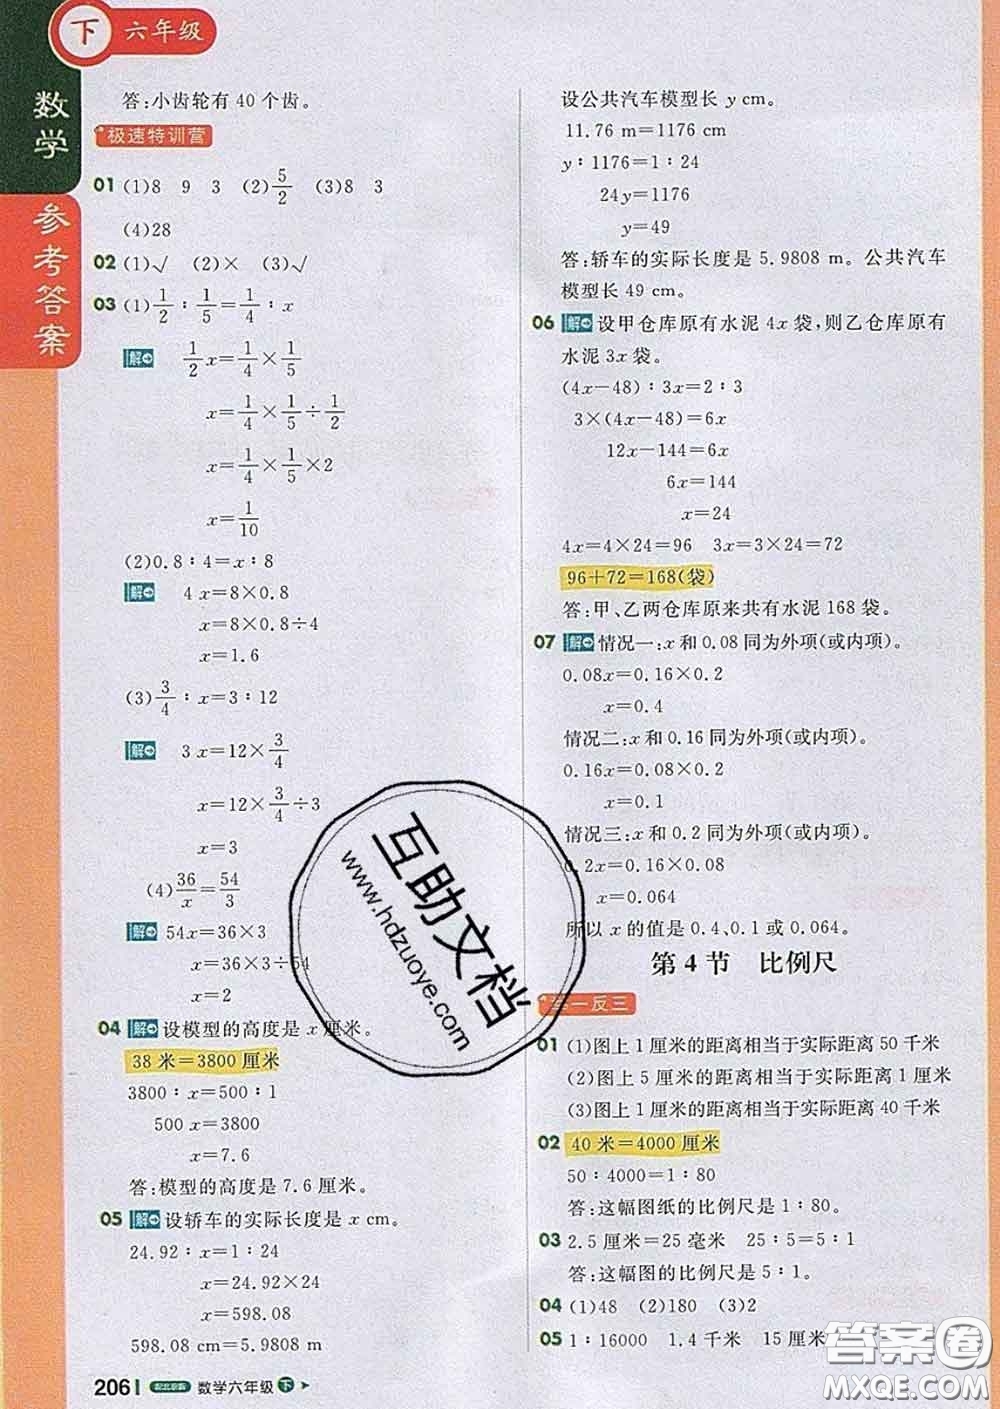 下 六年级
数学
参考答案
答:小齿轮有 40 个齿。
极速特训营
01 (1)8 9 3 (2)5/2 (3)8 3
(4)28
02 (1)√ (2)× (3)√
03 (1)1/2∶1/5=1/4∶x
解 1/2 x=1/4×1/5
x=1/4×1/5÷1/2
x=1/4×1/5×2
x=1/10
(2)0.8∶4=x∶8
解 4x=8×0.8
x=8×0.8÷4
x=1.6
(3)3/4∶x=3∶12
解 3x=12×3/4
x=12×3/4÷3
x=3
(4)36/x=54/3
解 54x=36×3
x=36×3÷54
x=2
04 解 设模型的高度是 x 厘米。
38 米=3800 厘米
3800∶x=500∶1
500x=3800
x=7.6
答:模型的高度是 7.6 厘米。
05 解 设轿车的实际长度是 x cm。
24.92∶x=1∶24
x=24.92×24
x=598.08
598.08 cm=5.9808 m
206 数学六年级 下
设公共汽车模型长 y cm。
11.76 m=1176 cm
y∶1176=1∶24
24y=1176
y=49
答:轿车的实际长度是 5.9808 m。公共汽车
模型长 49 cm。
06 解 设甲仓库原有水泥 4x 袋,则乙仓库原有
水泥 3x 袋。
(4x-48)∶3x=2∶3
3×(4x-48)=6x
12x-144=6x
6x=144
x=24
4x=4×24=96 3x=3×24=72
96+72=168(袋)
答:甲、乙两仓库原来共有水泥 168 袋。
07 解 情况一:x 和 0.08 同为外项(或内项)。
0.08x=0.16×0.2
x=0.4
情况二:x 和 0.16 同为外项(或内项)。
0.16x=0.08×0.2
x=0.1
情况三:x 和 0.2 同为外项(或内项)。
0.2x=0.16×0.08
x=0.064
所以 x 的值是 0.4、0.1 或 0.064。
第 4 节 比例尺
举一反三
01 (1)图上 1 厘米的距离相当于实际距离 50 千米
(2)图上 5 厘米的距离相当于实际距离 1 厘米
(3)图上 1 厘米的距离相当于实际距离 40 千米
02 40 米=4000 厘米
50∶4000=1∶80
答:这幅图纸的比例尺是 1∶80。
03 2.5 厘米=25 毫米 25∶5=5∶1
答:这幅图的比例尺是 5∶1。
04 (1)48 (2)180 (3)2
05 1∶16000 1.4 千米 15 厘米
互助文档
www.hdzuoye.com
答案圈
MXQE.COM